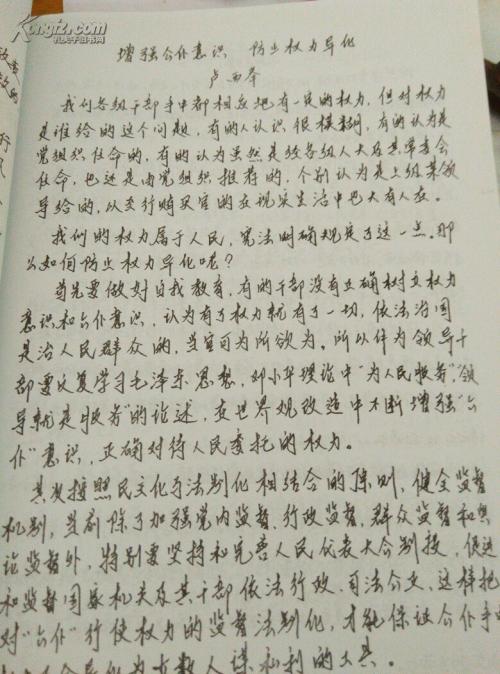 Kongfz.com
孔夫子旧书网
增强公仆意识 防止权力异化
卢西萍
我们各级干部手中都相应地有一定的权力,但对权力
是谁给的这个问题,有的人认识很模糊,有的认为是
党组织任命的,有的认为虽然是经各级人大及其常委会
任命,也还是由党组织推荐的,个别认为是上级某领
导给的,以至行贿买官的在现实生活中也大有人在。
我们的权力属于人民,宪法明确规定了这一点。那
么如何防止权力异化呢?
首先要做好自我教育,有的干部没有正确树立权力
意识和公仆意识,认为有了权力就有了一切,依法治国
是治人民群众的,当官可为所欲为,所以作为领导干
部要反复学习毛泽东思想,邓小平理论中“为人民服务”,“领
导就是服务”的论述,在世界观改造中不断增强“公
仆”意识,正确对待人民委托的权力。
其次按照民主化与法制化相结合的原则,健全监督
机制,当前除了加强党内监督、行政监督、群众监督和舆
论监督外,特别要坚持和完善人民代表大会制度,促进
和监督国家机关及其干部依法行政、司法公正,这样把
对“公仆”行使权力的监督法制化,才能保证公仆手中
异化为少数人谋私利的工具。